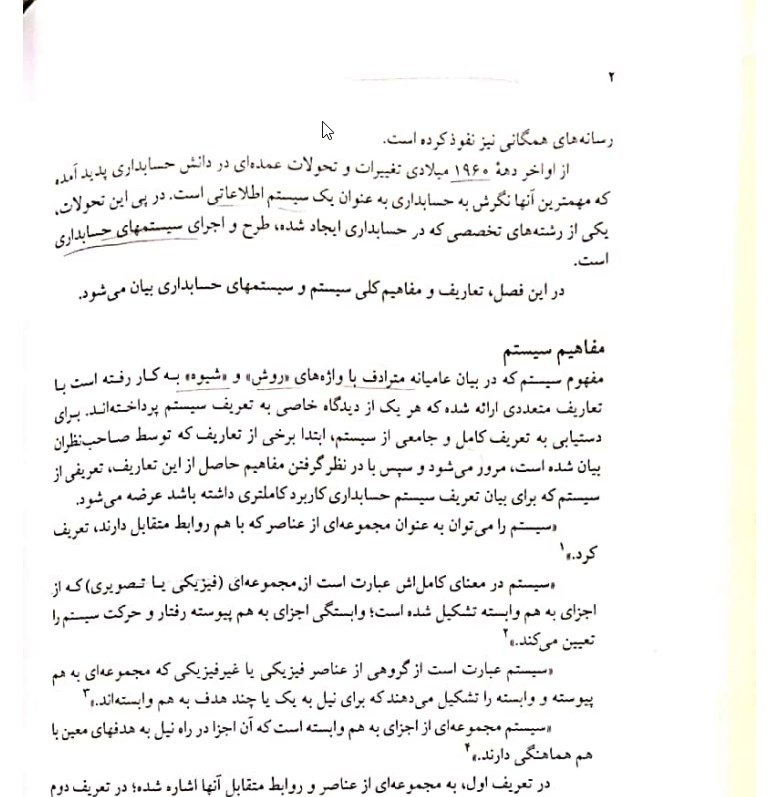 ۲
رسانه‌های همگانی نیز نفوذ کرده است.
از اواخر دههٔ ۱۹۶۰ میلادی تغییرات و تحولات عمده‌ای در دانش حسابداری پدید آمده
که مهمترین آنها نگرش به حسابداری به عنوان یک سیستم اطلاعاتی است. در پی این تحولات،
یکی از رشته‌های تخصصی که در حسابداری ایجاد شده، طرح و اجرای سیستمهای حسابداری
است.
در این فصل، تعاریف و مفاهیم کلی سیستم و سیستمهای حسابداری بیان می‌شود.
مفاهیم سیستم
مفهوم سیستم که در بیان عامیانه مترادف با واژه‌های «روش» و «شیوه» به کار رفته است با
تعاریف متعددی ارائه شده که هر یک از دیدگاه خاصی به تعریف سیستم پرداخته‌اند. برای
دستیابی به تعریف کامل و جامعی از سیستم، ابتدا برخی از تعاریف که توسط صاحب‌نظران
بیان شده است، مرور می‌شود و سپس با در نظر گرفتن مفاهیم حاصل از این تعاریف، تعریفی از
سیستم که برای بیان تعریف سیستم حسابداری کاربرد کاملتری داشته باشد عرضه می‌شود.
«سیستم را می‌توان به عنوان مجموعه‌ای از عناصر که با هم روابط متقابل دارند، تعریف
کرد.»۱
«سیستم در معنای کامل‌اش عبارت است از مجموعه‌ای (فیزیکی یا تصویری) که از
اجزای به هم وابسته تشکیل شده است؛ وابستگی اجزای به هم پیوسته رفتار و حرکت سیستم را
تعیین می‌کند.»۲
«سیستم عبارت است از گروهی از عناصر فیزیکی یا غیرفیزیکی که مجموعه‌ای به هم
پیوسته و وابسته را تشکیل می‌دهند که برای نیل به یک یا چند هدف به هم وابسته‌اند.»۳
«سیستم مجموعه‌ای از اجزای به هم وابسته است که آن اجزا در راه نیل به هدفهای معین با
هم هماهنگی دارند.»۴
در تعریف اول، به مجموعه‌ای از عناصر و روابط متقابل آنها اشاره شده؛ در تعریف دوم